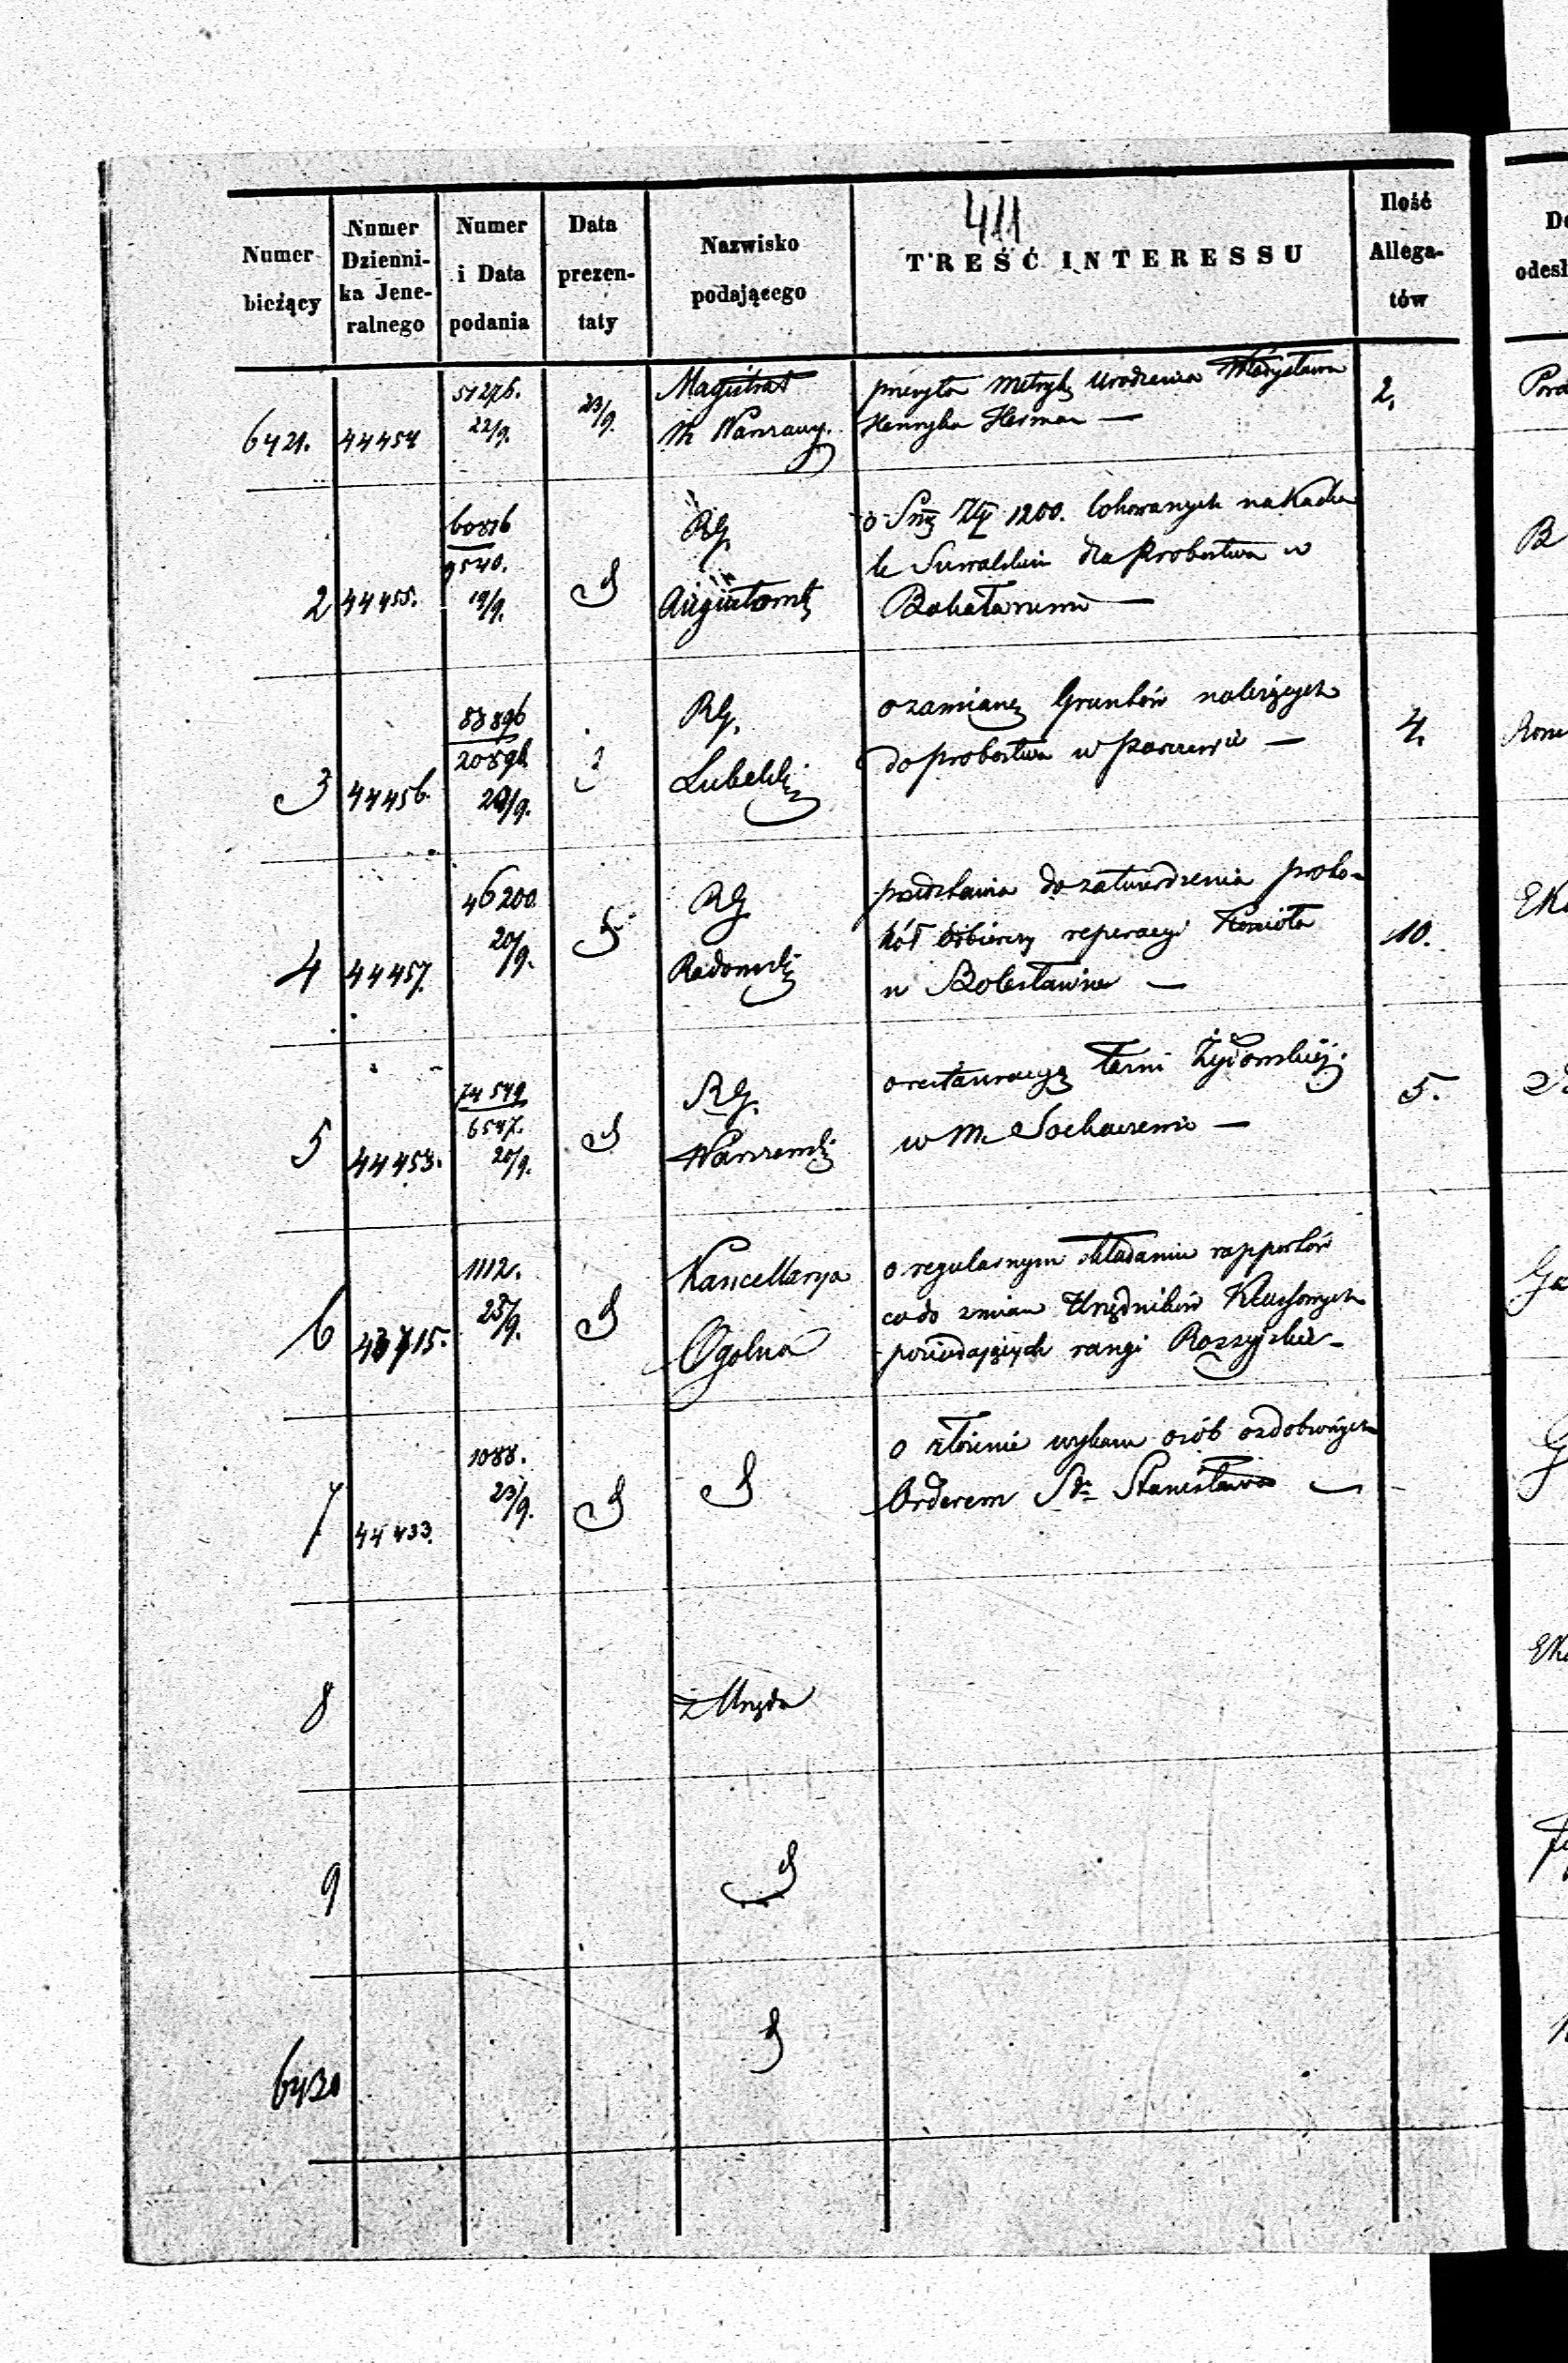 411
Numer bieżący
Numer Dzienni- ka Jene- ralnego
Numer i Data podania
Data prezen- taty
Nazwisko podającego
TREŚĆ INTERESSU
Ilość Allega- tów
6421. 44454 51276. 22/9. 23/9. Magistrat m Warszawy. przesyła metrykę urodzenia Władysława 2.
Henryka Herman —
2 44455. 60816 9540. 19/9. RG Augustows. o Smę Złp 1200. lokowanych na
Suwalskim dla Probostwa w
Bakałarzewie —
3 44456. 83896 20898 20/9. RG. Lubelski o zamianę Gruntów należących 4.
do probostwa w Parczewie —
4 44457. 46200. 20/9. RG Radomski przedstawia do zatwierdzenia proto-
kół odbiorczy reperacyi Kościoła 10.
w Bolesławiu —
5 44458. 74549 6547. 20/9. RG. Warszawski o restauracyą Łaźni Żydowskiej 5.
w m Sochaczewie —
6 43715. 1112. 23/9. Kancellarya Ogolna o regularnym składaniu rapportów
co do zmian Urzędników
posiadających rangi Rossyjskie —
7 44433. 1088. 23/9. o złożenie wykazu osób ozdobionych
Orderem Sgo Stanisława —
8 z Urzędu
9
6430